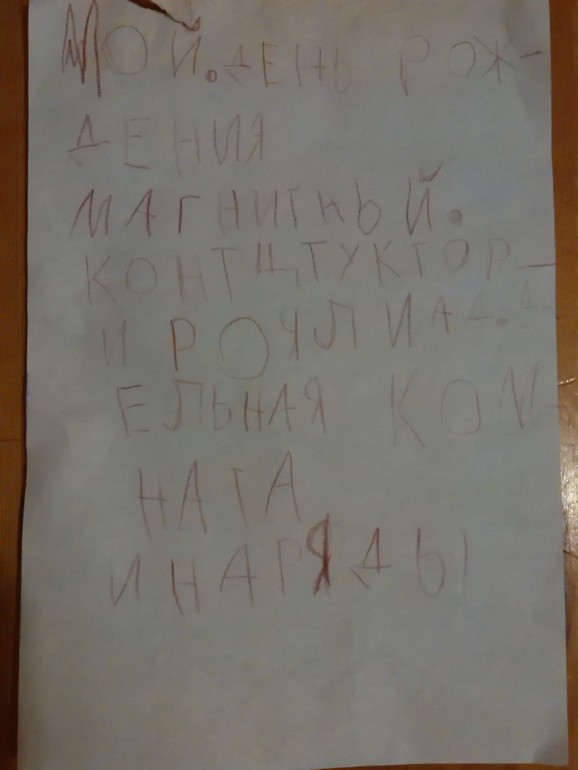 МОЙ.ДЕНЬ РОЖ-
ДЕНИЯ
МАГНИТНЫЙ.
КОНТЦТУКТОР-
И РОЯЛИ АД.Д
ЕЛЬНАЯ КОМ-
НАТА
И НАРЯДЫ